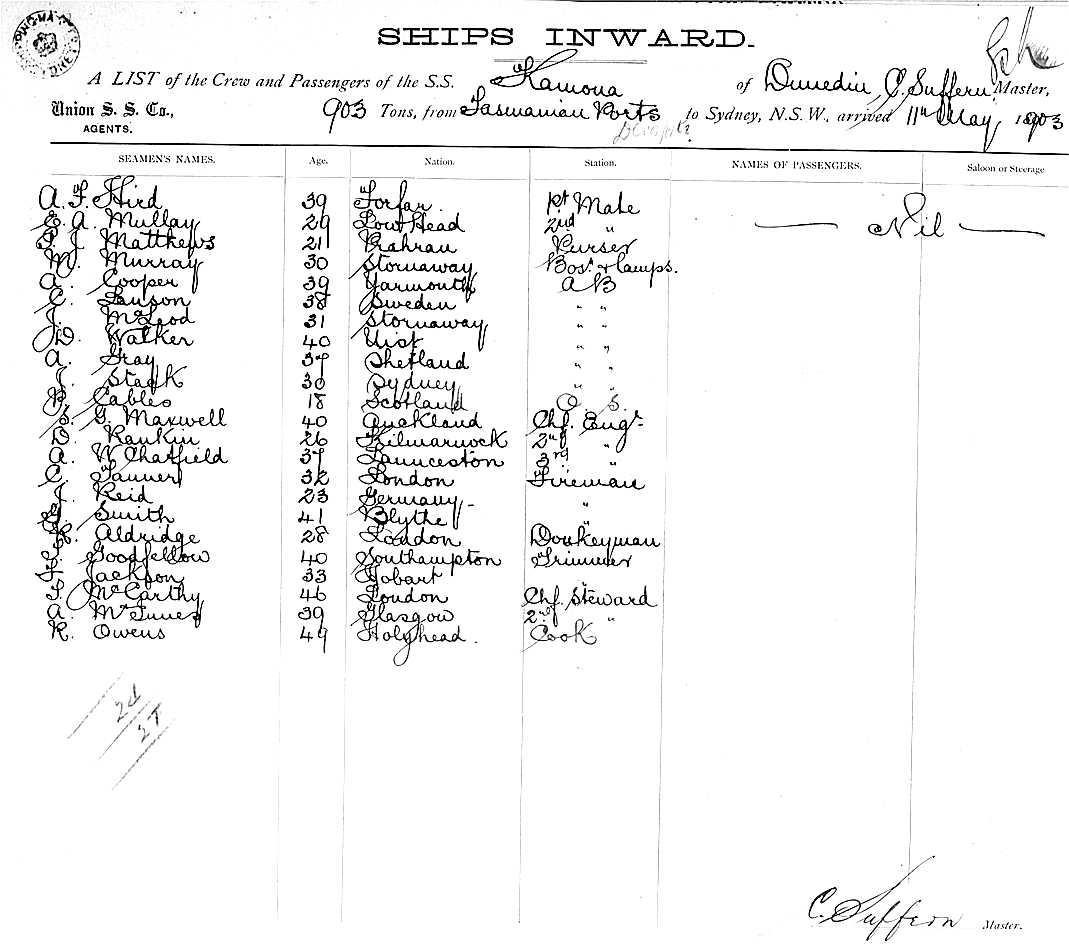 SHIPS INWARD.
A LIST of the Crew and Passengers of the S.S. Kamona of Dunedin, C. Suffern, Master,
Union S. S. Co., AGENTS. 903 Tons, from Tasmanian Ports to Sydney, N.S.W., arrived 11th May, 1903
SEAMEN'S NAMES. Age. Nation. Station. NAMES OF PASSENGERS. Saloon or Steerage
A. F. Hird 39 Forfar. 1st Mate — Nil —
E. A. Mullay 29 Low Head 2nd "
P. J. Matthews 21 Prahran Purser
M. Murray 30 Stornaway Bosn & Lamps.
A. Cooper 39 Yarmouth A B
C. Lauson 38 Sweden " "
J. McLeod 31 Stornaway " "
D. Walker 40 Uist " "
A. Gray 37 Shetland " "
J. Stack 30 Sydney " "
P. Cables 18 Scotland O. S.
S. G. Maxwell 40 Auakland Chf. Engr
D. Rankin 26 Kilmarnock 2nd "
A. W Chatfield 37 Launceston 3rd "
C. Tanner 32 London Fireman
J. Reid 23 Germany - "
G. Smith 41 Blythe "
H. Aldridge 28 London Donkeyman
T. Goodfellow 40 Southampton Trimmer
F. Jackson 33 Hobart "
T. McCarthy 46 London Chf. Steward
A. McInnes 39 Glasgow 2nd "
R. Owens 49 Holyhead. Cook
C. Suffern Master.